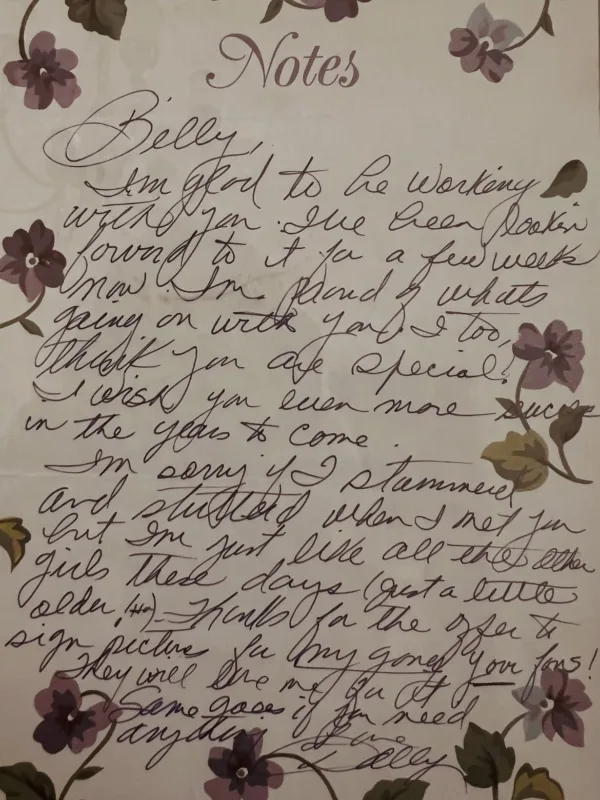 Notes
Billy,
I'm glad to be working
with you. I've been lookin
forward to it for a few weeks
now. I'm proud of whats
going on with you. I too,
think you are special!
I wish you even more success
in the years to come.
I'm sorry if I stammered
and stuttered when I met you
but I'm just like all the other
girls these days (just a little
older. (Ha). Thanks for the offer to
sign pictures for my gang your fans!
They will love me for it
Same goes if you need
anything Love